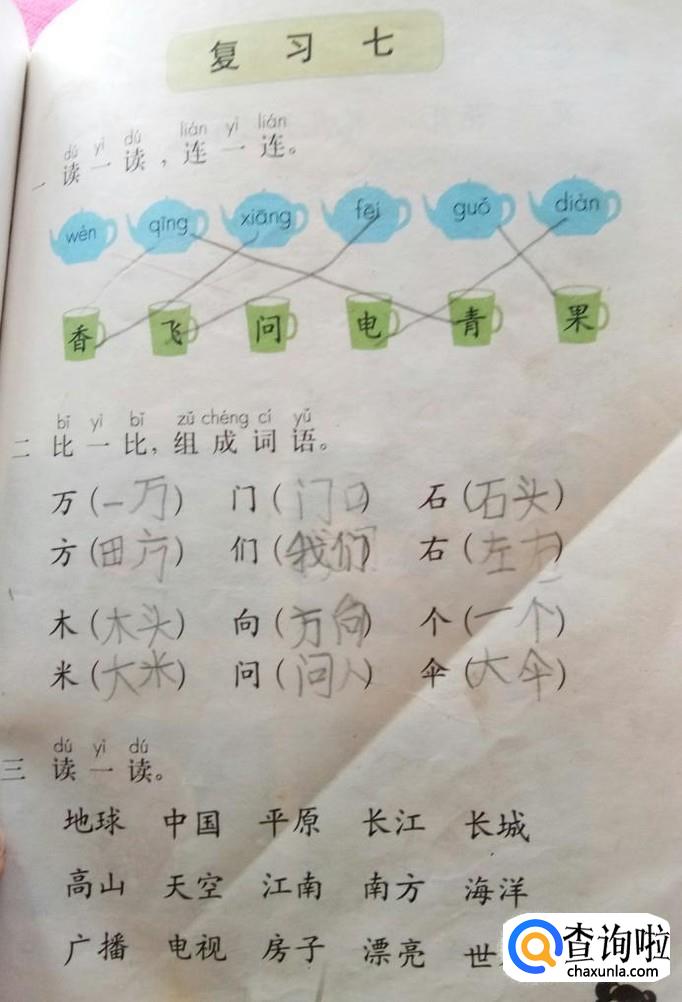 复习七
dú yì dú lián yì lián
一 读一读，连一连。
wèn qīng xiāng fēi guǒ diàn
香 飞 问 电 青 果
bǐ yì bǐ zǔ chéng cí yǔ
二 比一比，组成词语。
万（一万） 门（门口） 石（石头）
方（田方） 们（我们） 右（左右）
木（木头） 向（方向） 个（一个）
米（大米） 问（问人） 伞（大伞）
dú yì dú
三 读一读。
地球 中国 平原 长江 长城
高山 天空 江南 南方 海洋
广播 电视 房子 漂亮 世
查询啦
chaxunla.com